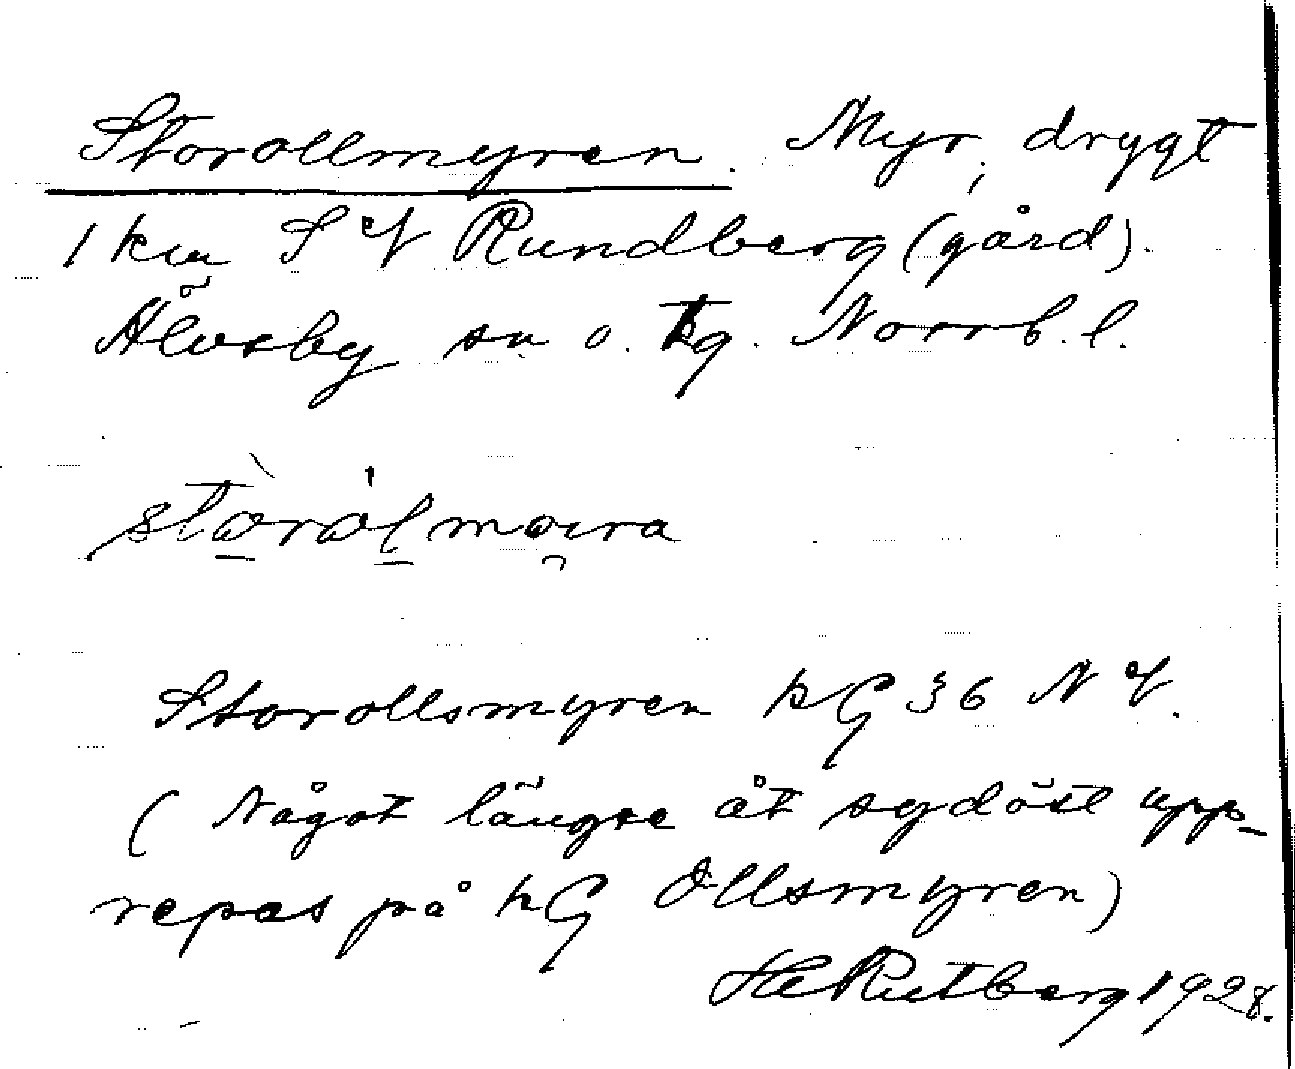 Storollmyren. Myr, drygt
1 km SV Rundberg (gård).
Älvsby sn o. tg. Norrb. l.
Storollsmyren kG 36 NV.
(Något längre åt sydöst upp-
repas på kG Ollsmyren)
HRutberg 1928.